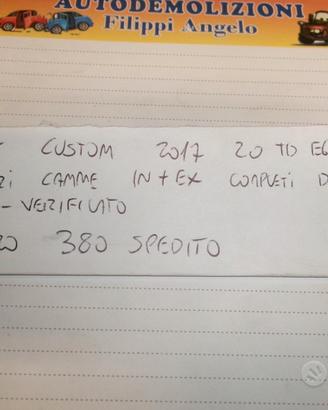 AUTODEMOLIZIONI
Filippi Angelo
CUSTOM 2017 20 TD
CAMME IN + EX COMPLETI D
- VERIFICATO
380 SPEDITO